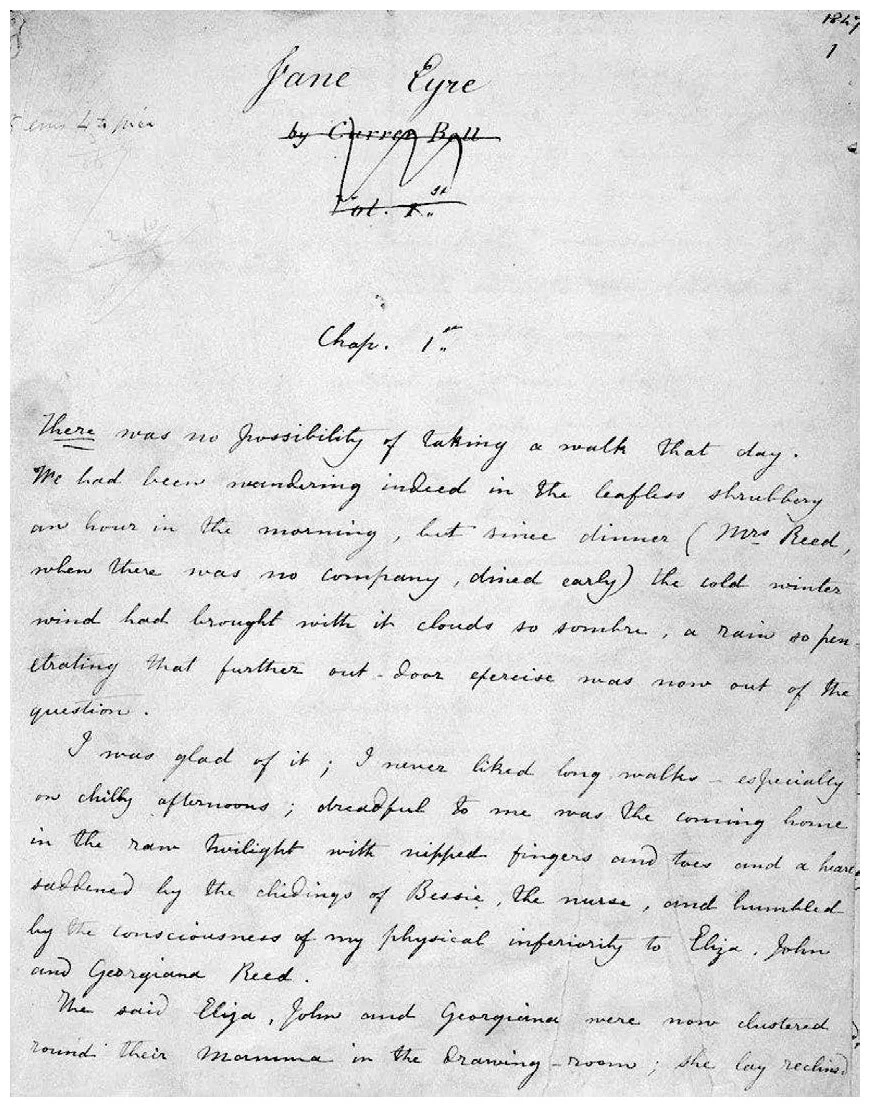 1847
1
Jane Eyre
by Currer Bell
Vol. 1.st
Chap. 1st
There was no possibility of taking a walk that day.
We had been wandering indeed in the leafless shrubbery
an hour in the morning, but since dinner (Mrs Reed,
when there was no company, dined early) the cold winter
wind had brought with it clouds so sombre, a rain so pen-
etrating that further out-door exercise was now out of the
question.
I was glad of it; I never liked long walks - especially
on chilly afternoons; dreadful to me was the coming home
in the raw twilight with nipped fingers and toes and a heart
saddened by the chidings of Bessie, the nurse, and humbled
by the consciousness of my physical inferiority to Eliza, John
and Georgiana Reed.
The said Eliza, John and Georgiana were now clustered
round their Mamma in the drawing-room; she lay reclined